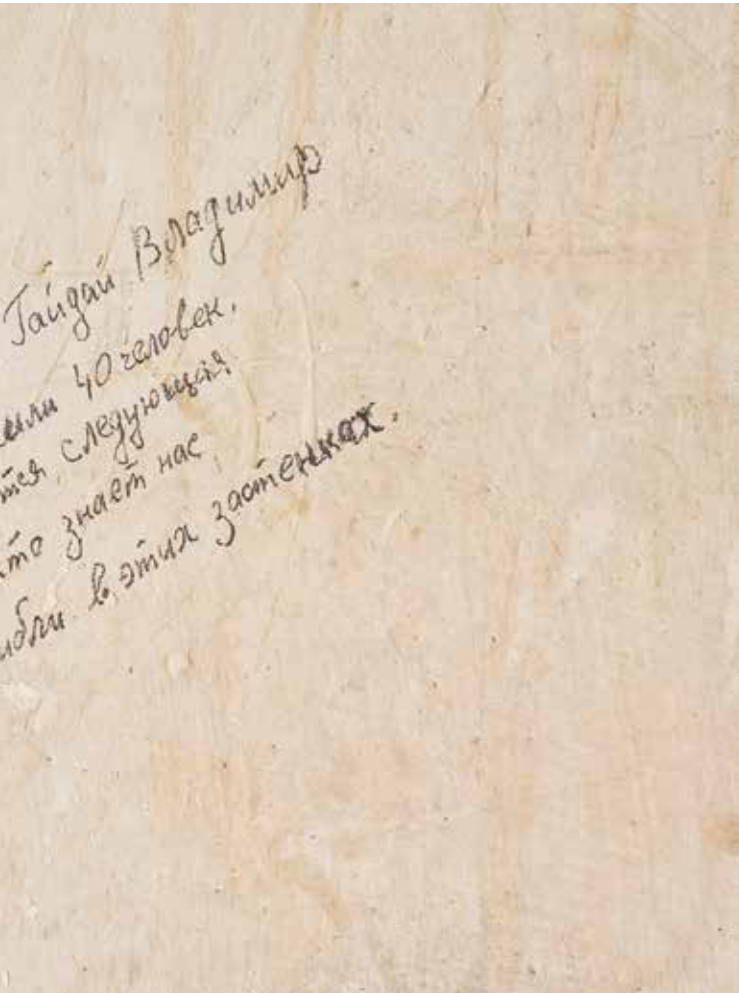 Гайдай Владимир
шли 40 человек,
тся, следующая
кто знает нас,
ибли в этих застенках.